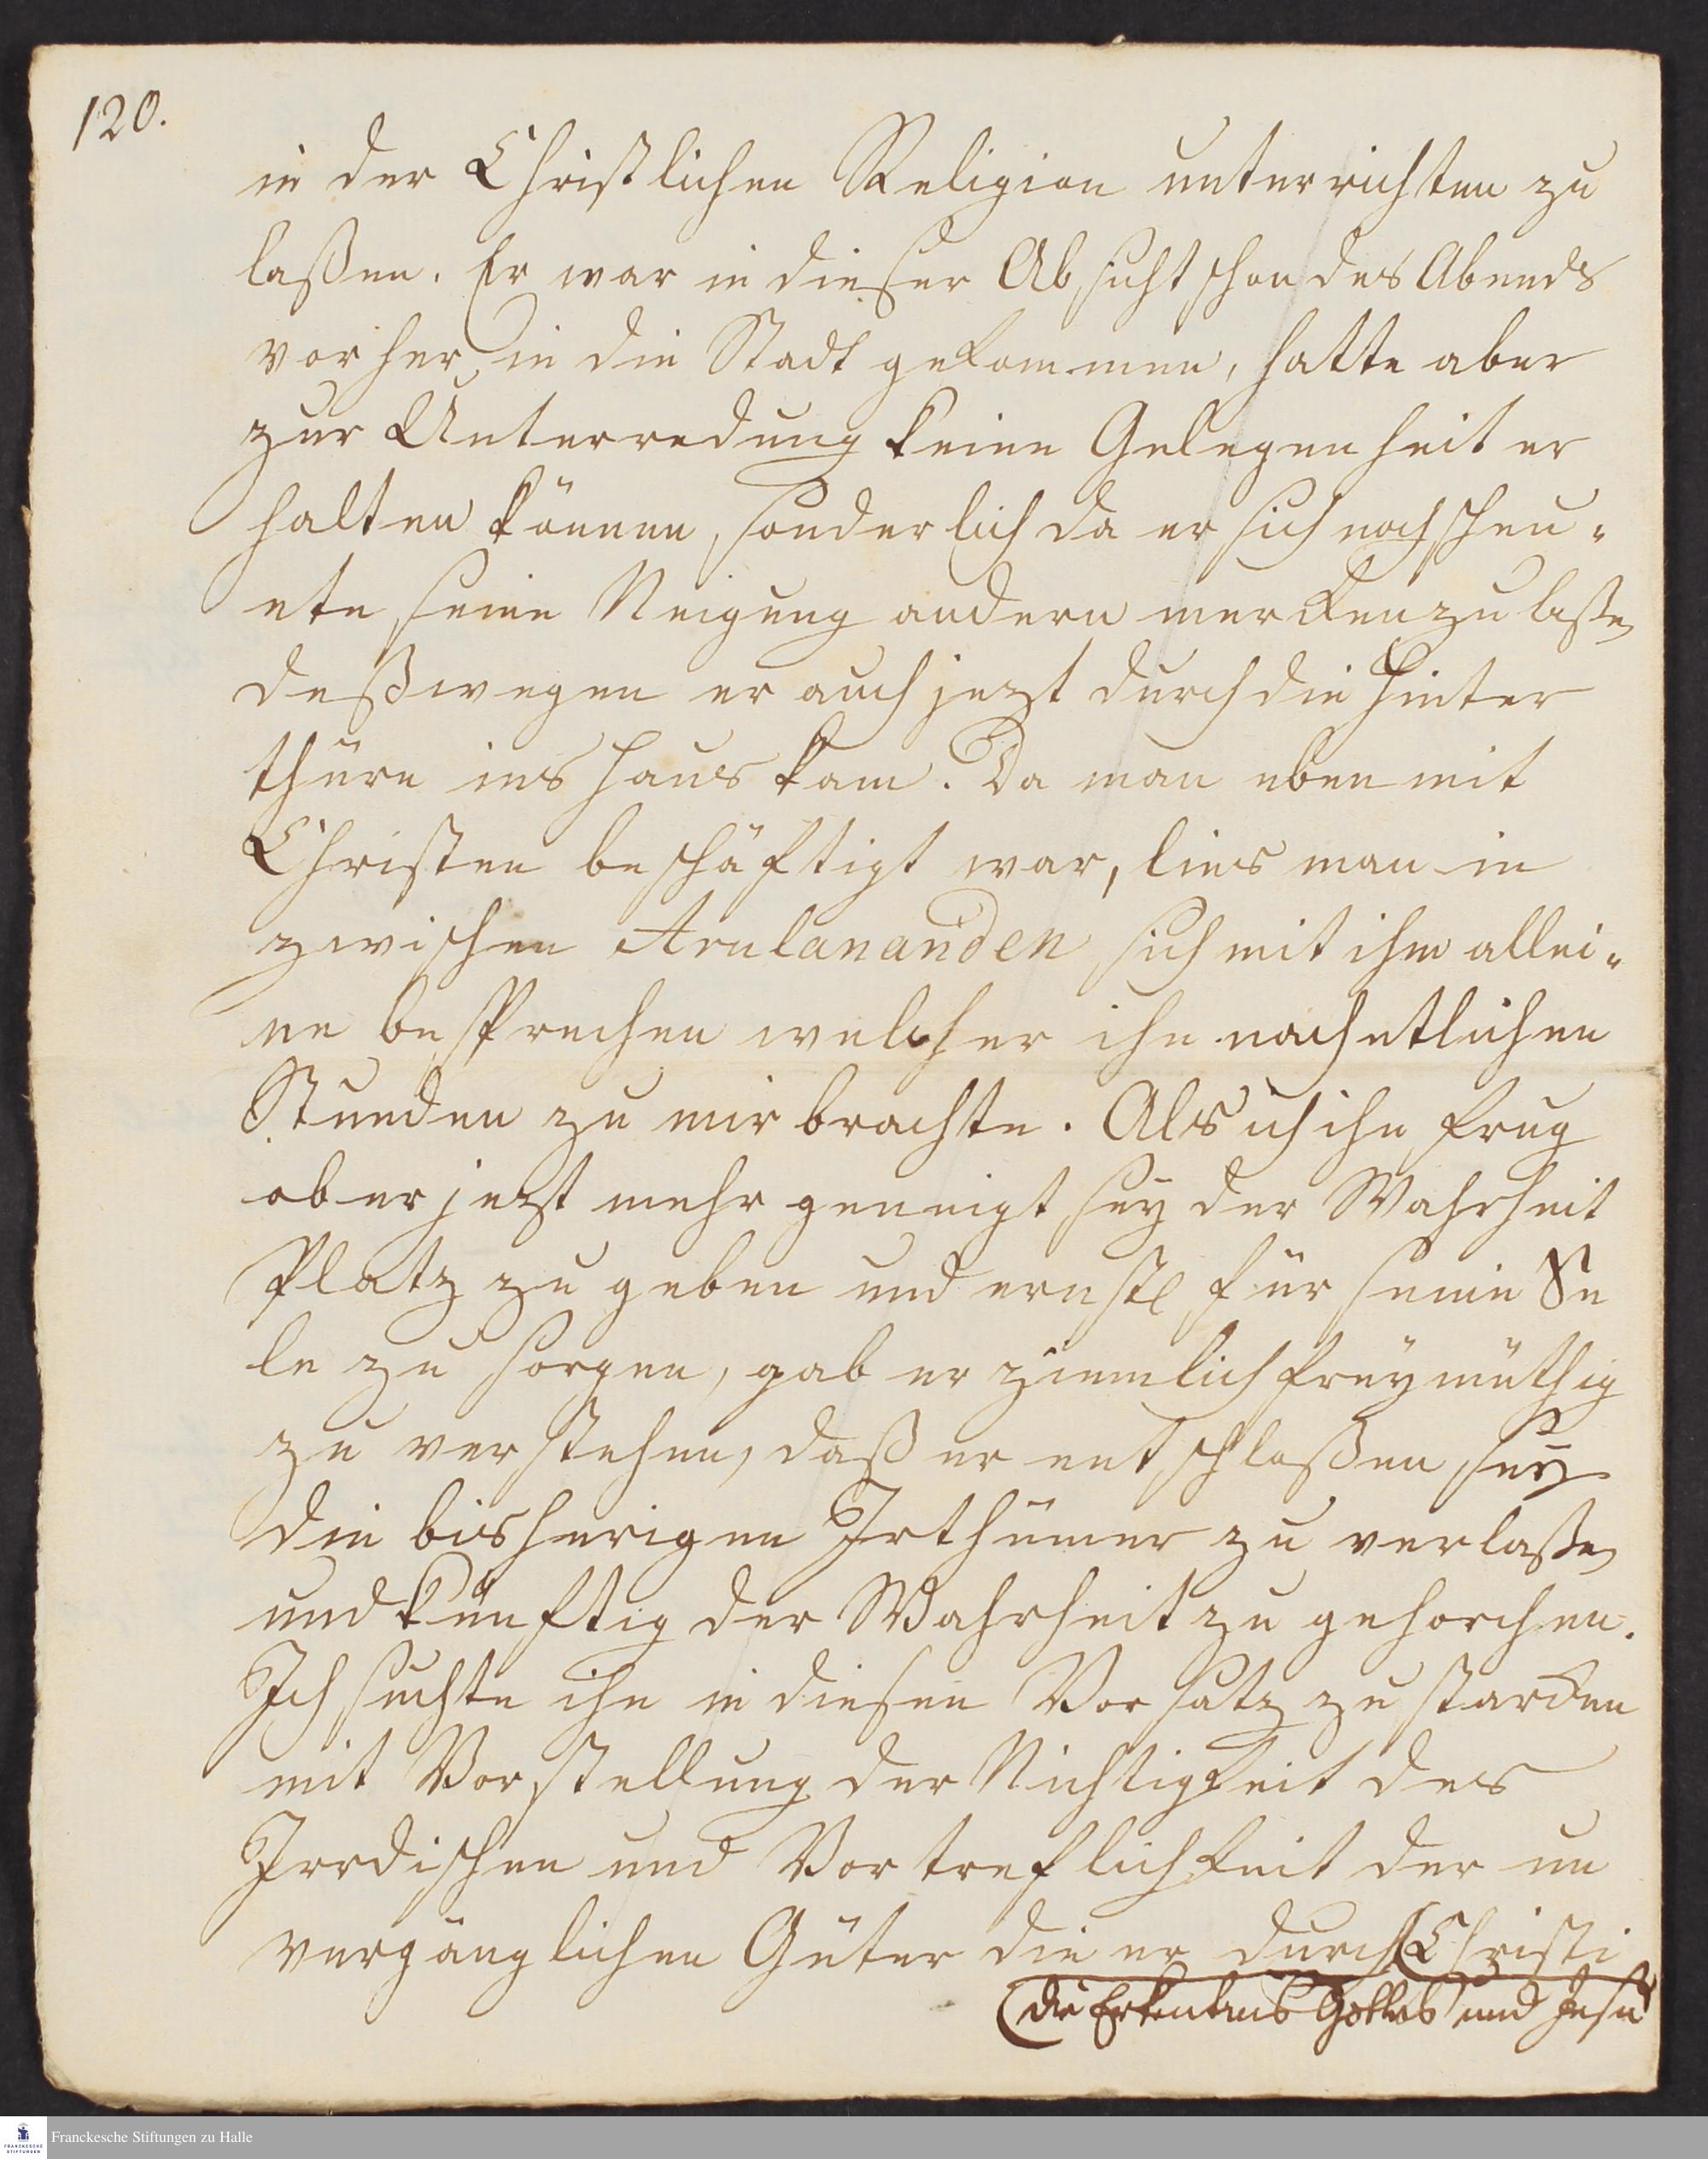 120.
in der Christlichen Religion unterrichten zu
laßen. Er war in dieser Absicht schon des Abends
vorher in die Stadt gekommen, hatte aber
zur Unterredung keine Gelegenheit er
halten können, sonderlich da er sich noch scheu-
ete seine Neigung andern mercken zu laßen
deßwegen er auch jezt durch die Hinter
thüre ins Haus kam. Da man eben mit
Christen beschäftigt war, lies man in
zwischen Arulananden sich mit ihm allei-
ne besprechen welcher ihn nach etlichen
Stunden zu mir brachte. Als ich ihn frug
ob er jezt mehr geneigt sey der Wahrheit
Platz zu geben und ernstl für seine Se
le zu sorgen, gab er ziemlich freymüthig
zu verstehen, daß er entschloßen sey
die bisherigen Irthümer zu verlaßen
und künftig der Wahrheit zu gehorchen.
Ich suchte ihn in diesen Vorsatz zu starcken
mit Vorstellung der Nichtigkeit des
Irrdischen und Vortreflichkeit der un
vergänglichen Güter die er durch Christi
die Erkentnis Gottes und Jesu
Franckesche Stiftungen zu Halle
FRANCKESCHE
STIFTUNGEN